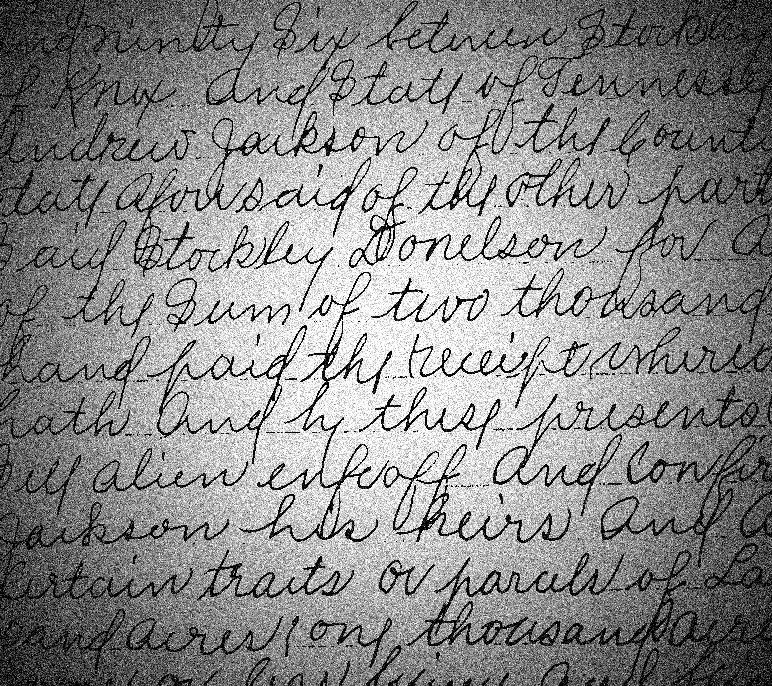 and ninity Six between Stockley
of Knox and State of Tennessee
Andrew Jackson of the Count
State aforesaid of the other part
Said Stockley Donelson for a
of the Sum of two thousand
hand paid the receipt where
hath and by these presents
Sell alien enfeoff and Confir
Jackson his heirs and a
Certain traits or parcels of La
and acres one thousand acre